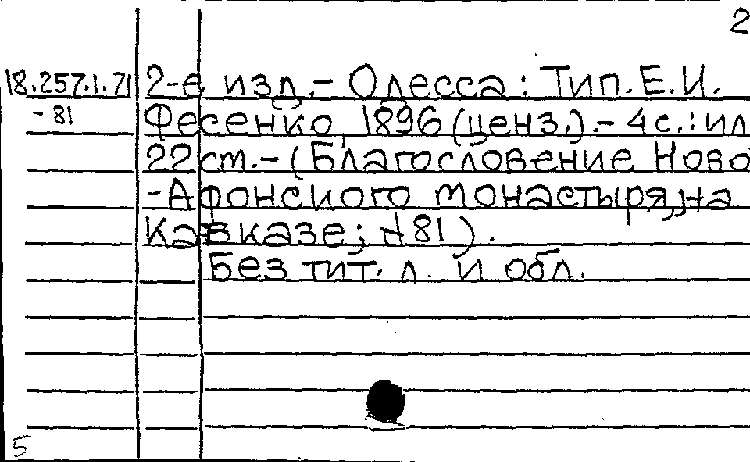 2
18.257.1.71 2-е изд. - Одесса : Тип. Е.И.
-81 Фесенко, 1896 (ценз.). - 4 с. : ил
22 см. - (Благословение Ново
-Афонского монастыря, на
Кавказе; №81).
Без тит. л. и обл.
5